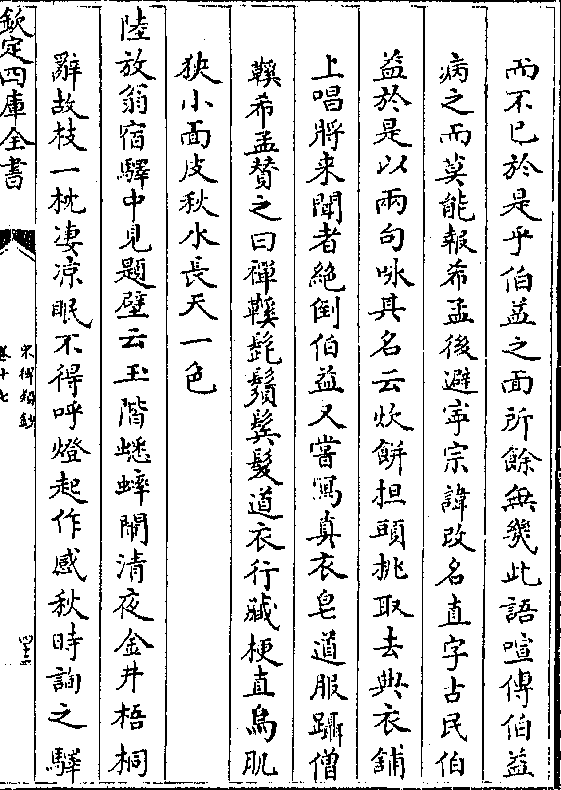 而不已於是乎伯益之面所餘無幾此語喧傳伯益
病之而莫能報希孟後避寧宗諱改名直字占民伯
益於是以兩句咏其名云炊餅担頭挑取去典衣舖
上唱將来聞者絶倒伯益又嘗寫真衣皂道服躡僧
鞵希孟賛之曰禪鞵髭鬚鬓髪道衣行藏梗直鳥肌
狹小面皮秋水長天一色
陸放翁宿驛中見題壁云玉階蟋蟀鬧清夜金井梧桐
辭故枝一枕凄凉眠不得呼燈起作感秋時詢之驛
欽定四庫全書
宋稗類鈔
卷十七